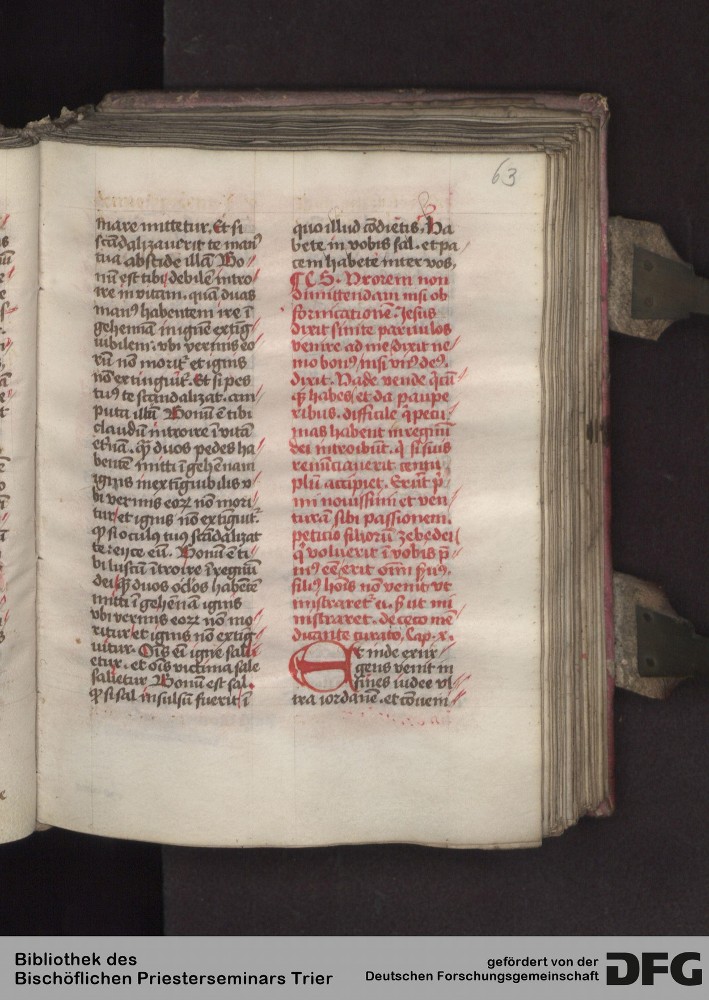 63
mare mittetur. Et si
scãdalizauerit te manꝰ
tua abscide illã Bo
nũ est tibi debilẽ intro
ire in vitam. quã duas
manꝰ habentem ire ĩ
gehennã in ignẽ extig̃
uibilem. vbi vermis eo
rũ nõ morit᷑ et ignis
nõ extinguit᷑. Et si pes
tuꝰ te scãdalizat. am
puta illũ Bonũ ẽ tibi
claudũ introire ĩ vitã
et̃nã. qꝫ̃ duos pedes ha
bentẽ mitti ĩ gehẽnam
ignis inextiguibilis v
bi vermis eoꝝ nõ mori
tur et ignis nõ extiguit᷑.
qͦ si oculꝰ tuꝰ scãdalizat
te eijce eũ. Bonũ ẽ ti
bi luscũ ĩtroire ĩ regnũ
dei qꝫ̃ duos oc̃los habẽtẽ
mitti ĩ gehẽnã ignis
vbi vermis eoꝝ nõ mo
ritur et ignis nõ extig̃
uitur. Oĩs eĩ igne sali
etur. et oĩs victima sale
salietur Bonũ est sal.
qͦ si sal insulsũ fuerit ĩ
quo illud cõdietis. Ha
bete in vobis sal. et pa
cem habete inter vos.
¶ C S. Uxorem non
dimittendam nisi ob
fornicationẽ. Jesus
dixit sinite paruulos
venire ad me dixit ne
mo bonꝰ nisi vnꝰ deꝰ.
dixit. Uade vende quã
qꝫ̃ habes et da paupe
ribus. difficile q̃ pecu
nias habent in regnũ
dei introibũt. q̃ si suis
renũciauerit centu
plũ accipiet. Erũt p̃
mi nouissimi et ven
turã sibi passionem.
peticio filiorũ zebedei
q̃ voluerit ĩ vobis p̃
mꝰ eẽ erit oĩm ẜuꝰ.
filiꝰ hoĩs nõ venit vt
mĩstraret᷑ ei. ẜ ut mi
nistraret. de ceco me
dicante curato. Cap. x.
Et inde exur
gens venit in
fines iudee vl
tra iordanẽ. et cõueni
Bibliothek des
Bischöflichen Priesterseminars Trier
gefördert von der
Deutschen Forschungsgemeinschaft
DFG